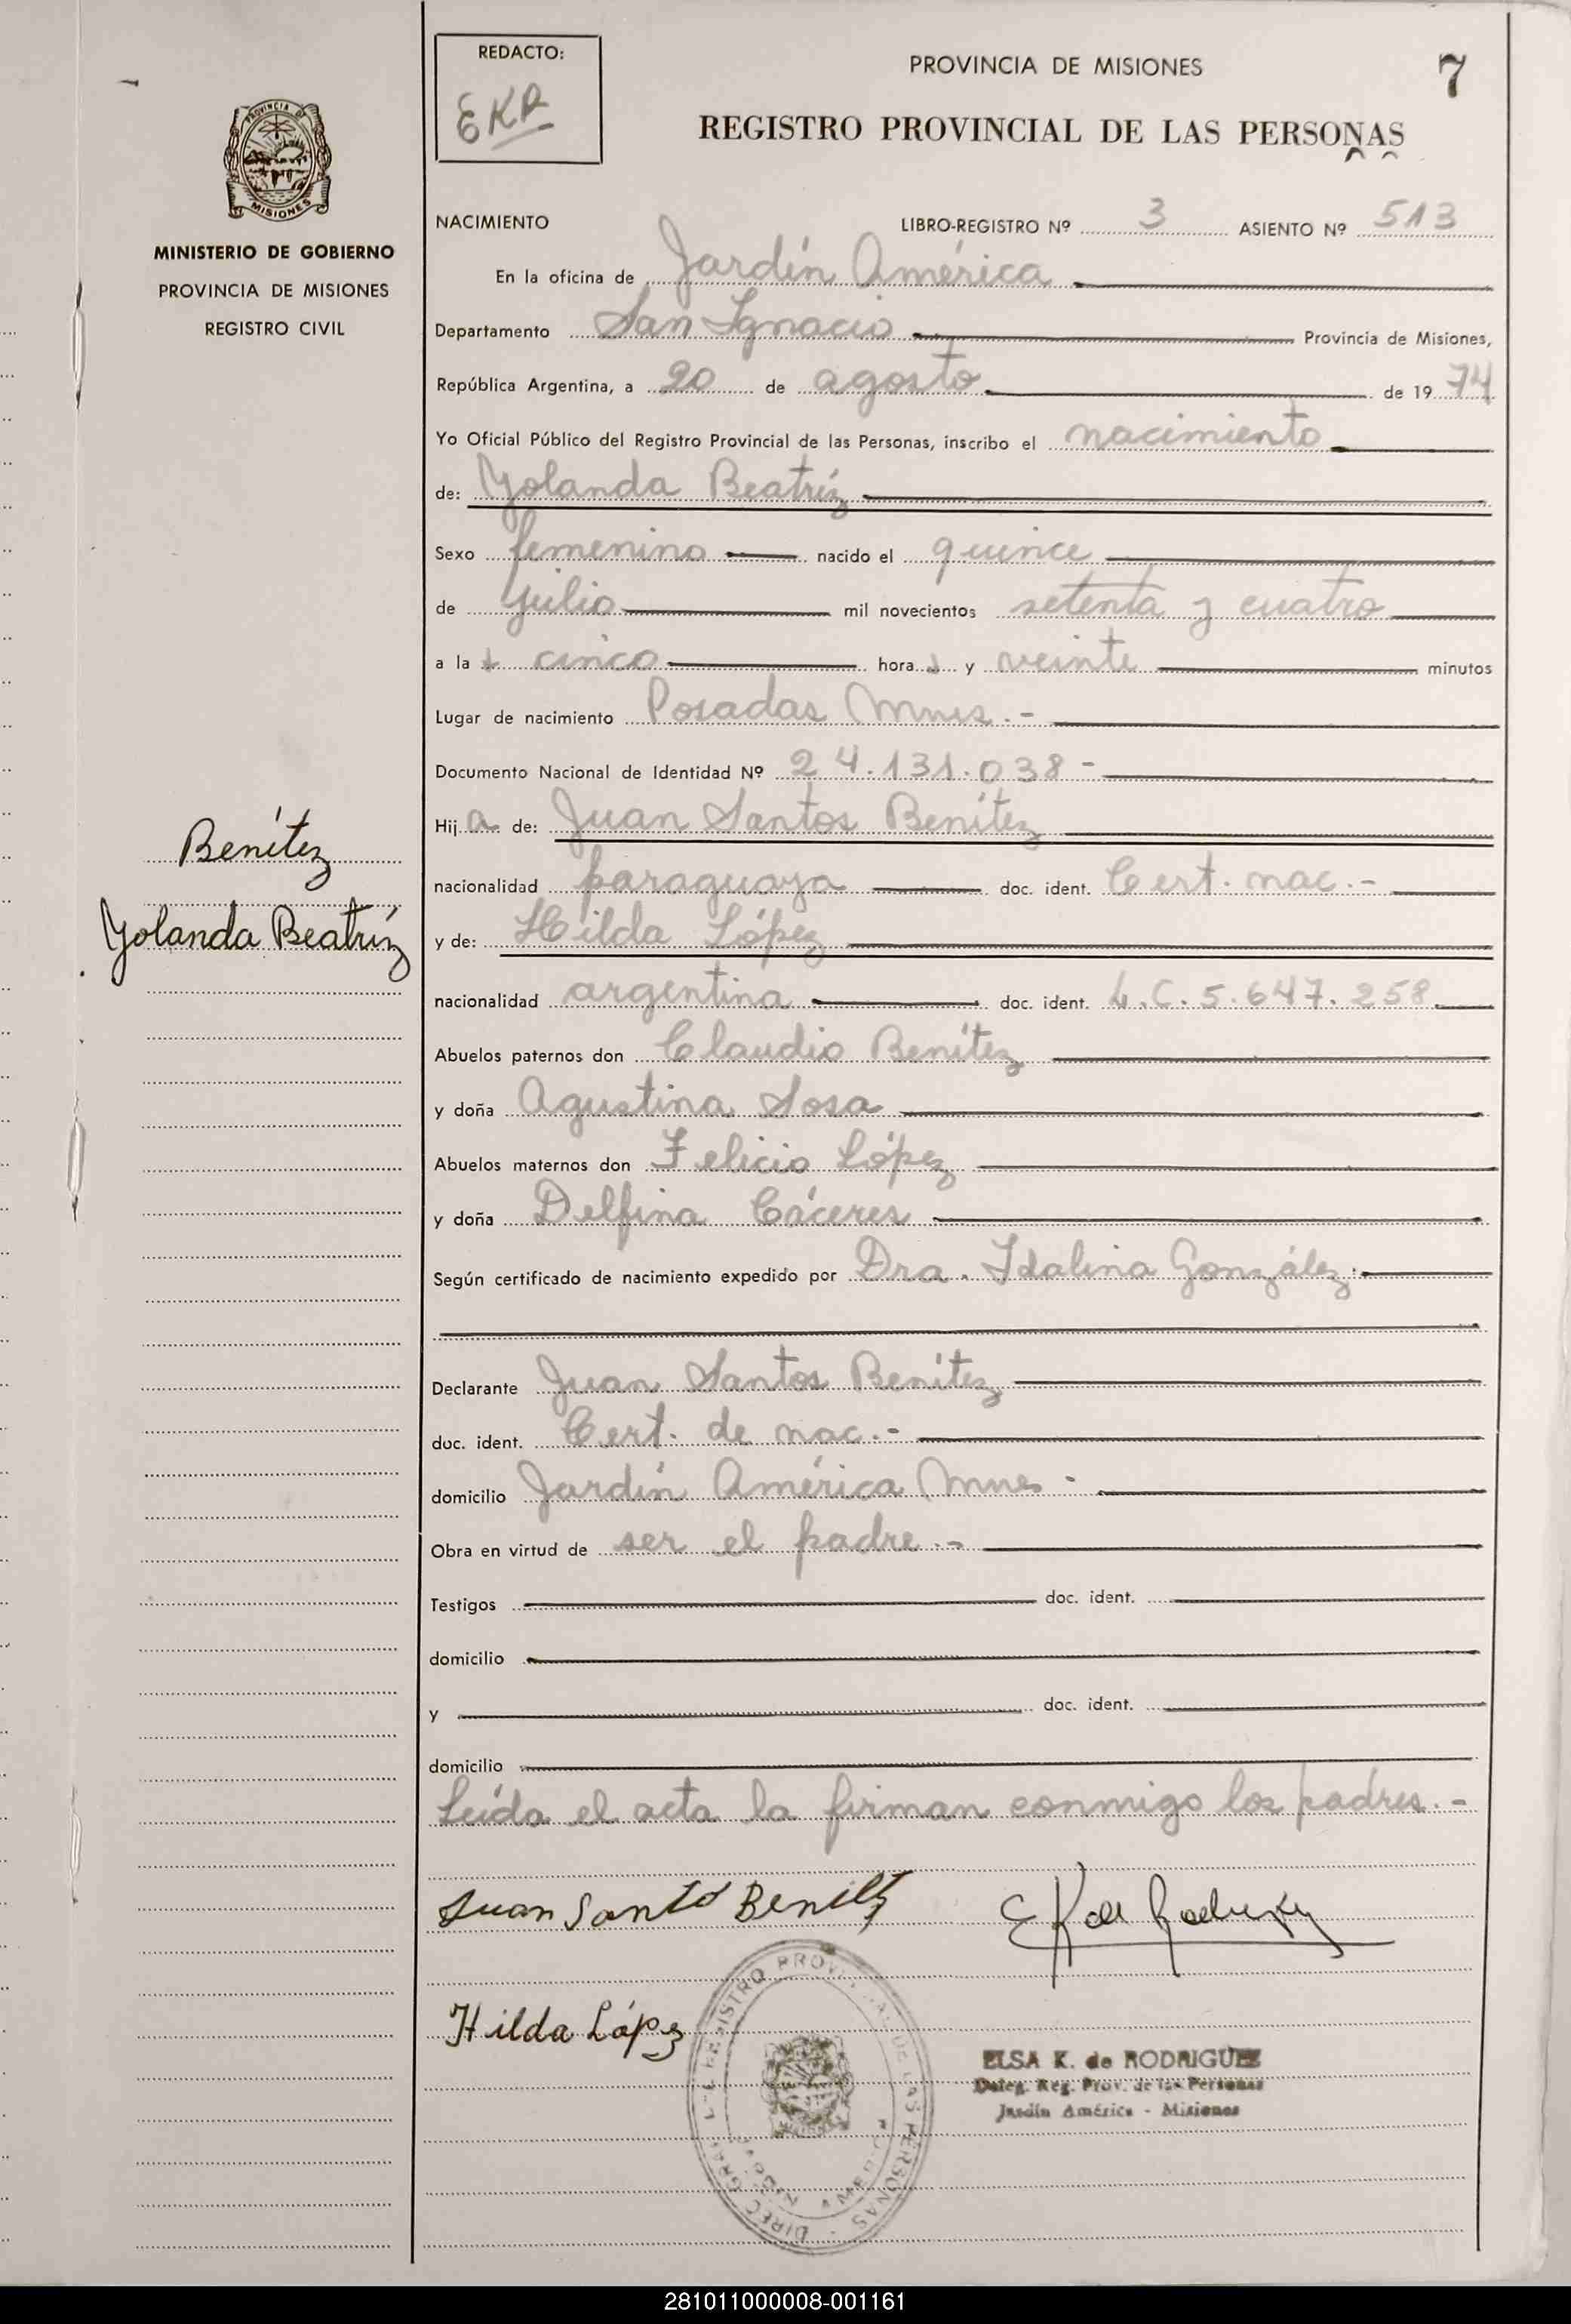 REDACTO:
EKR
PROVINCIA DE MISIONES
7
REGISTRO PROVINCIAL DE LAS PERSONAS
PROVINCIA DE
MISIONES
MINISTERIO DE GOBIERNO
PROVINCIA DE MISIONES
REGISTRO CIVIL
Benítez
Yolanda Beatríz
NACIMIENTO LIBRO-REGISTRO Nº 3 ASIENTO Nº 513
En la oficina de Jardín América
Departamento San Ignacio Provincia de Misiones,
República Argentina, a 20 de agosto de 1974
Yo Oficial Público del Registro Provincial de las Personas, inscribo el nacimiento
de: Yolanda Beatríz
Sexo femenino nacido el quince
de Julio mil novecientos setenta y cuatro
a las cinco horas y veinte minutos
Lugar de nacimiento Posadas Mnes.-
Documento Nacional de Identidad Nº 24.131.038-
Hija de: Juan Santos Benítez
nacionalidad paraguaya doc. ident. Cert. nac.-
y de: Hilda López
nacionalidad argentina doc. ident. L.C. 5.647.258.
Abuelos paternos don Claudio Benítez
y doña Agustina Sosa
Abuelos maternos don Felicio López
y doña Delfina Cáceres
Según certificado de nacimiento expedido por Dra. Idalina González.
Declarante Juan Santos Benítez
doc. ident. Cert. de nac.-
domicilio Jardín América Mnes -
Obra en virtud de ser el padre.-
Testigos doc. ident.
domicilio
y doc. ident.
domicilio
Leída el acta la firman conmigo los padres.-
Juan Santo Benítez
EK de Rodriguez
Hilda López
DIREC. GRAL. DEL REGISTRO PROVINCIAL DE LAS PERSONAS
ELSA K. de RODRIGUEZ
Deleg. Reg. Prov. de las Personas
Jardín América - Misiones
281011000008-001161